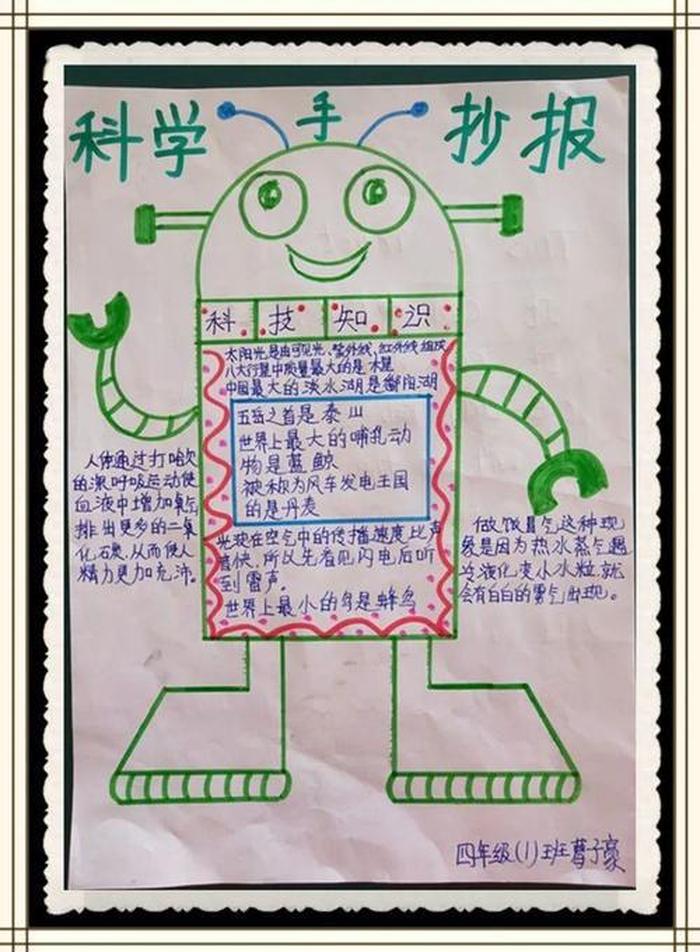 科学手抄报
科技知识
太阳光是由可见光、紫外线、红外线组成
八大行星中质量最大的是木星
中国最大的淡水湖是鄱阳湖
五岳之首是泰山
世界上最大的哺乳动
物是蓝鲸
被称为风车发电王国
的是丹麦
光波在空气中的传播速度比声
音快,所以先看见闪电后听
到雷声。
世界上最小的鸟是蜂鸟
人体通过打哈欠
的深呼吸运动使
血液中增加氧气
排出更多的二氧
化石炭,从而使人
精力更加充沛。
做饭冒气这种现
象是因为热水蒸气遇
冷液化变小水粒,就
会有白白的雾气出现。
四年级(1)班曹子豪